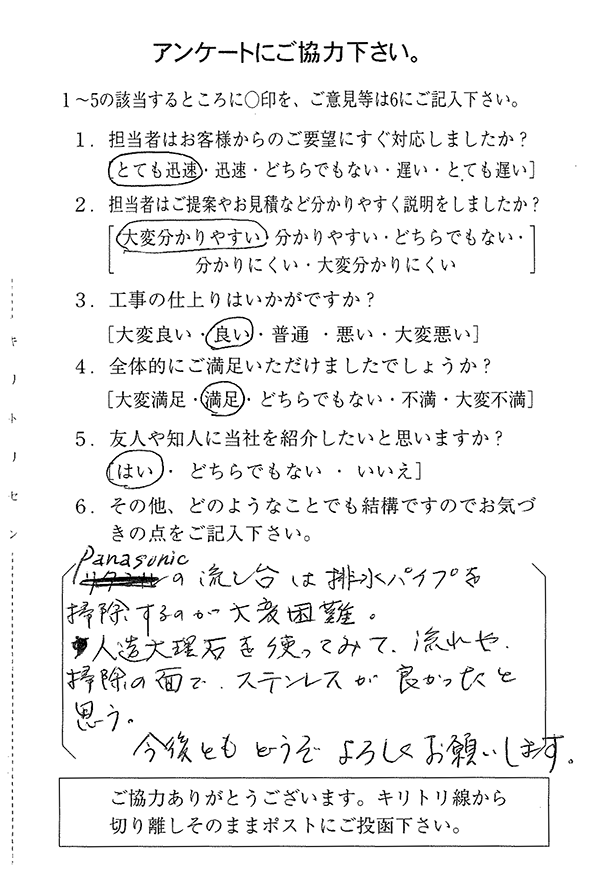 アンケートにご協力下さい。
1～5の該当するところに○印を、ご意見等は6にご記入下さい。
1．担当者はお客様からのご要望にすぐ対応しましたか？
[とても迅速・迅速・どちらでもない・遅い・とても遅い]
2．担当者はご提案やお見積など分かりやすく説明をしましたか？
[大変分かりやすい・分かりやすい・どちらでもない・
分かりにくい・大変分かりにくい]
3．工事の仕上りはいかがですか？
[大変良い・良い・普通・悪い・大変悪い]
4．全体的にご満足いただけましたでしょうか？
[大変満足・満足・どちらでもない・不満・大変不満]
5．友人や知人に当社を紹介したいと思いますか？
[はい・どちらでもない・いいえ]
6．その他、どのようなことでも結構ですのでお気づ
きの点をご記入下さい。
Panasonic
の流し台は排水パイプを
掃除するのが大変困難。
人造大理石を使ってみて、流れや、
掃除の面で、ステンレスが良かったと
思う。
今後ともどうぞよろしくお願いします。
ご協力ありがとうございます。キリトリ線から
切り離しそのままポストにご投函下さい。
キリトリセン